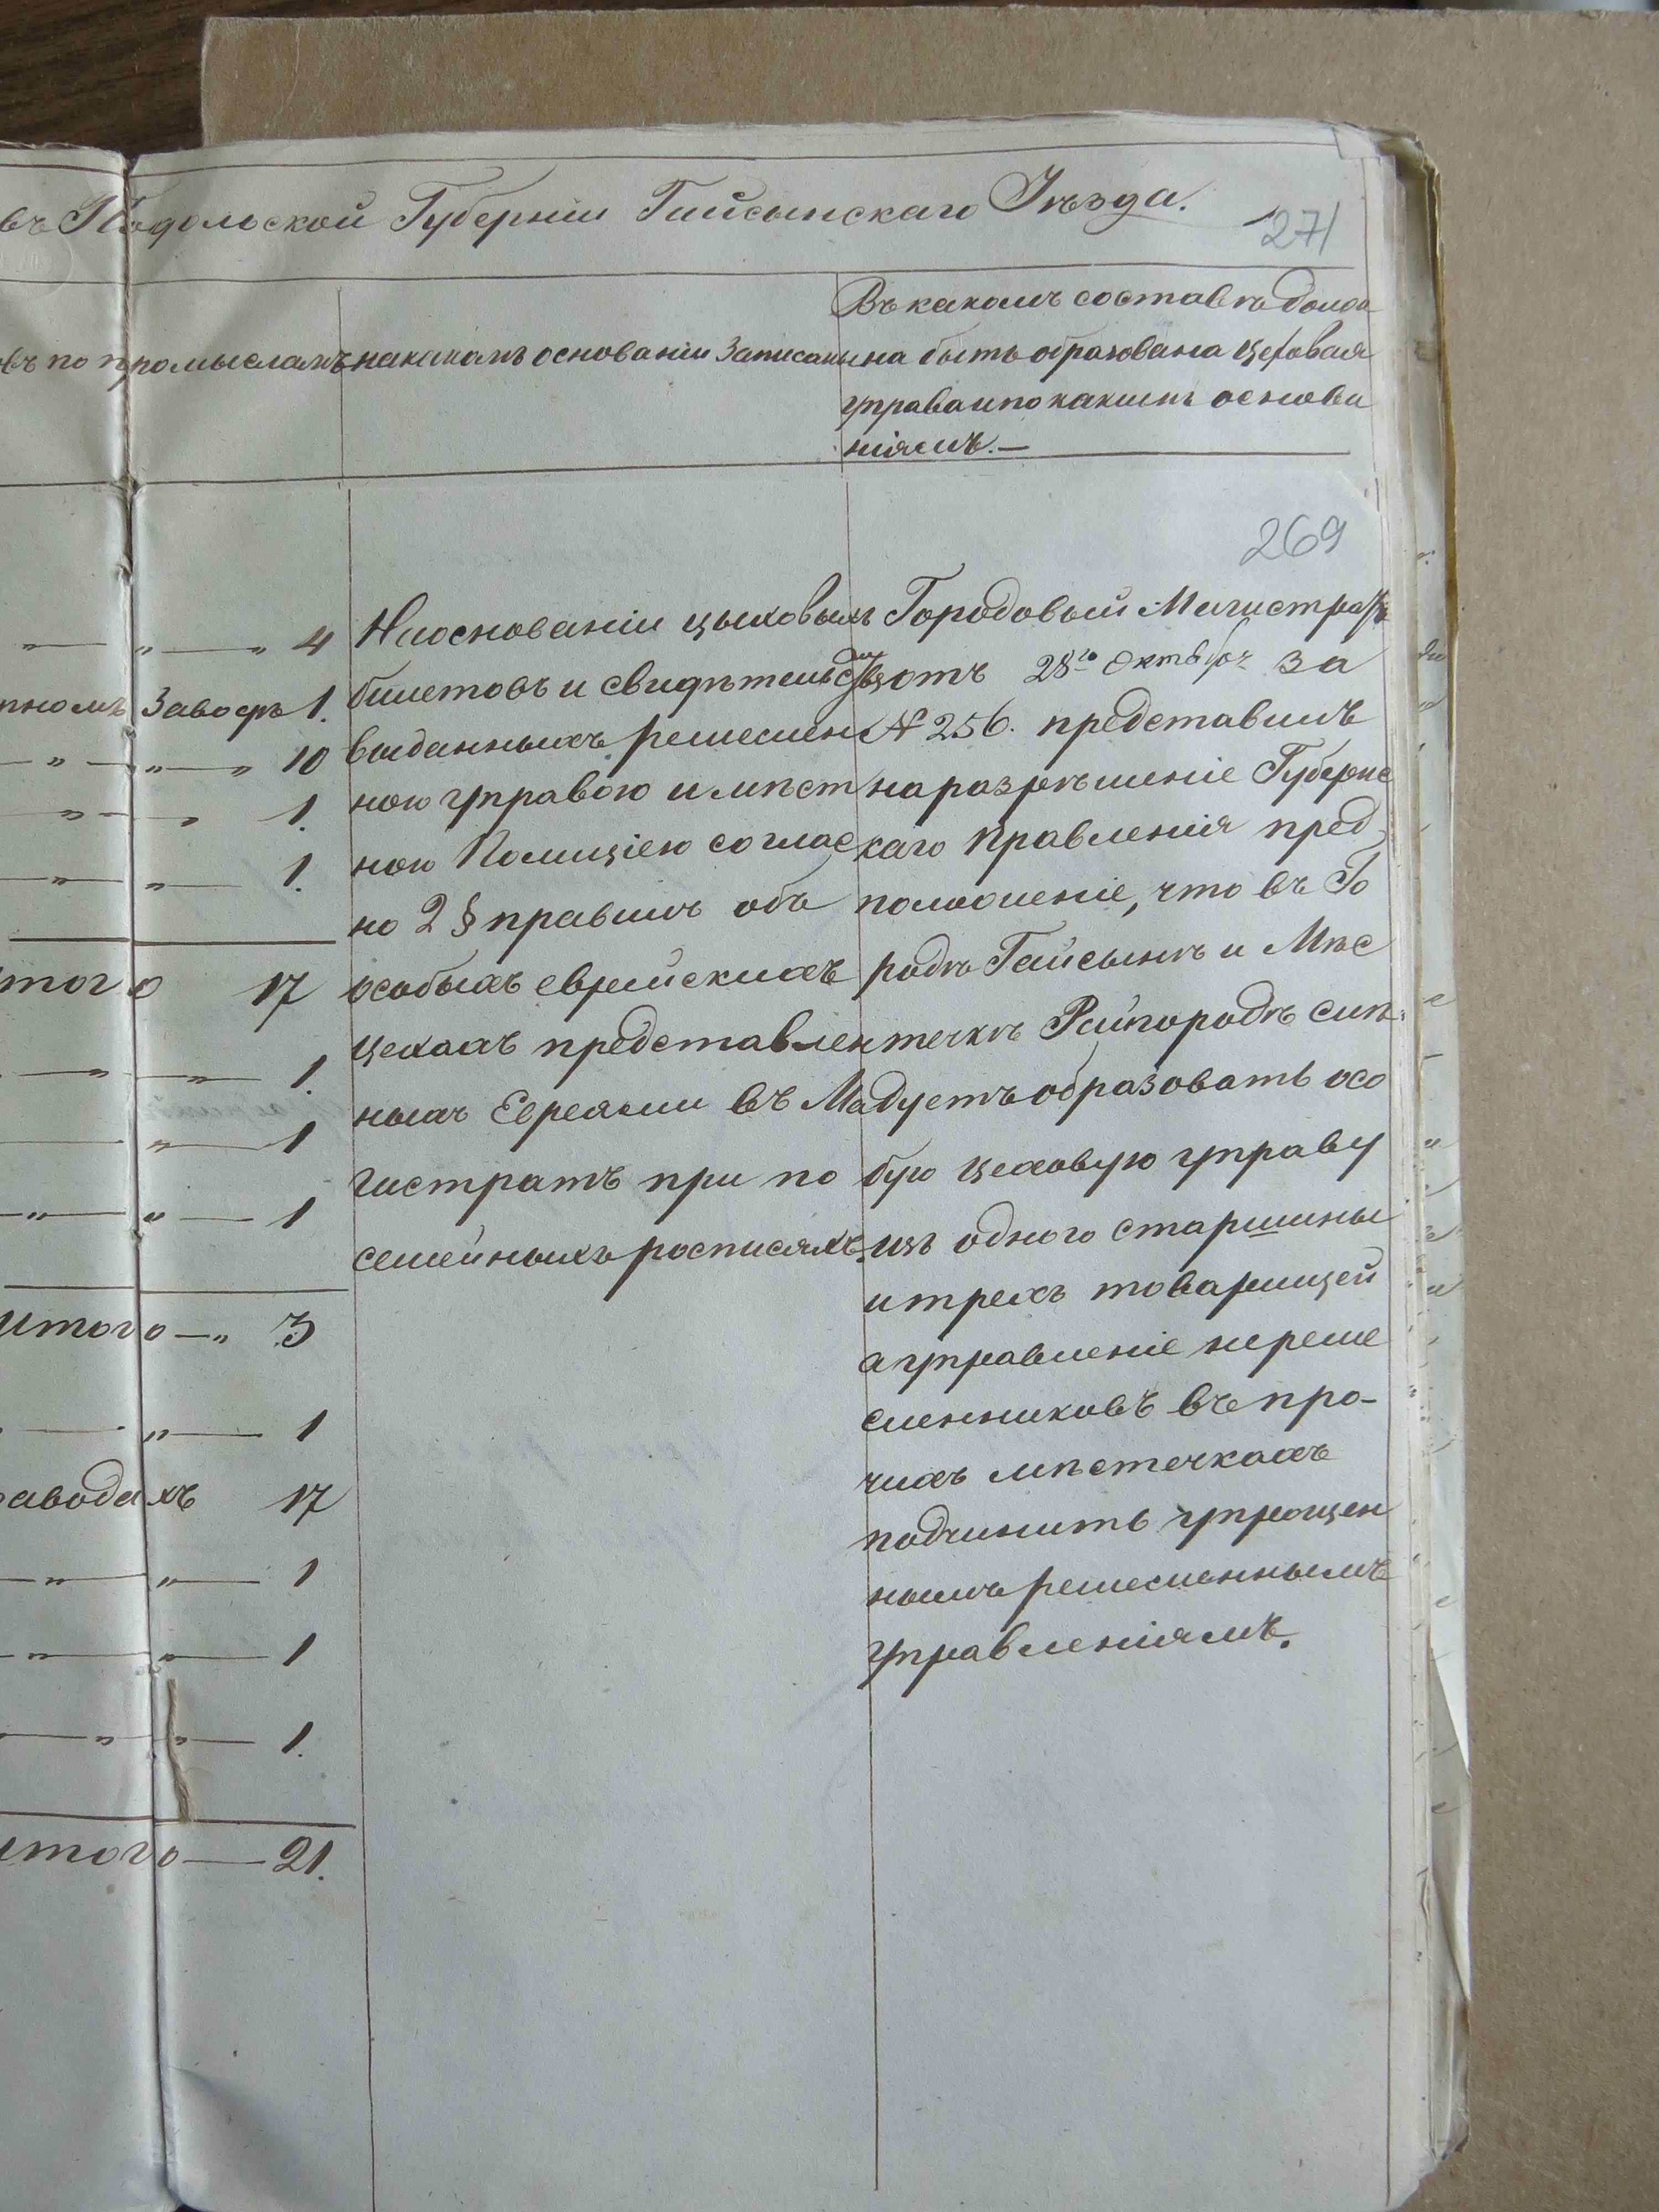 въ Подольской Губерніи Гайсынскаго Уѣзда.
271
въ по промысламъ
на какомъ основаніи записаны
Въ какомъ составѣ долж
на быть образована цеховая
управа и по какимъ основа
ніямъ.—
269
— „ — „ 4
Заводѣ 1.
— „ — „ — „ 10
— „ — „ 1.
— „ — „ — 1.
итого 17
— „ — „ — 1.
— „ — 1
— „ — „ — 1
Итого — „ 3
— „ — 1
заводахъ 17
— „ — „ — 1
— „ — „ — 1
— „ — „ — 1.
итого — 21.
На основаніи цыховыхъ
билетовъ и свидѣтельствъ
выданныхъ ремеслен
ною управою и мѣст
ною Полиціею соглас
но 2 § правилъ объ
особыхъ еврейскихъ
цехахъ представлен
ныхъ Евреями въ Ма
гистратъ при по
семейныхъ росписяхъ.
Городовый Магистратъ
отъ 28го Октября за
№ 256. представилъ
на разрѣшеніе Губернс
каго Правленія пред
положеніе, что въ Го
родѣ Гайсынѣ и Мѣс
течкѣ Райгородѣ слѣ
дуетъ образовать осо
бую цеховую управу
изъ одного старшины
и трехъ товарищей
а управленіе нереме
сленниковъ въ про-
чихъ мѣстечкахъ
подчинить упрощен
нымъ ремесленнымъ
управленіямъ.